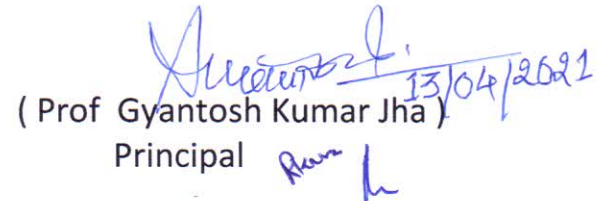 13/04/2021
( Prof Gyantosh Kumar Jha )
Principal